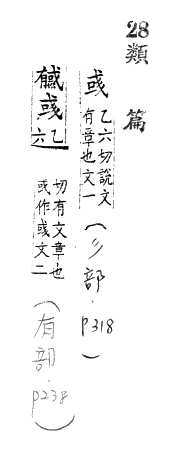 28 類篇
彧 乙六切說文
有章也文一
(彡部.p318)
戫彧 乙六
切有文章也
或作彧文二
(有部.p238)